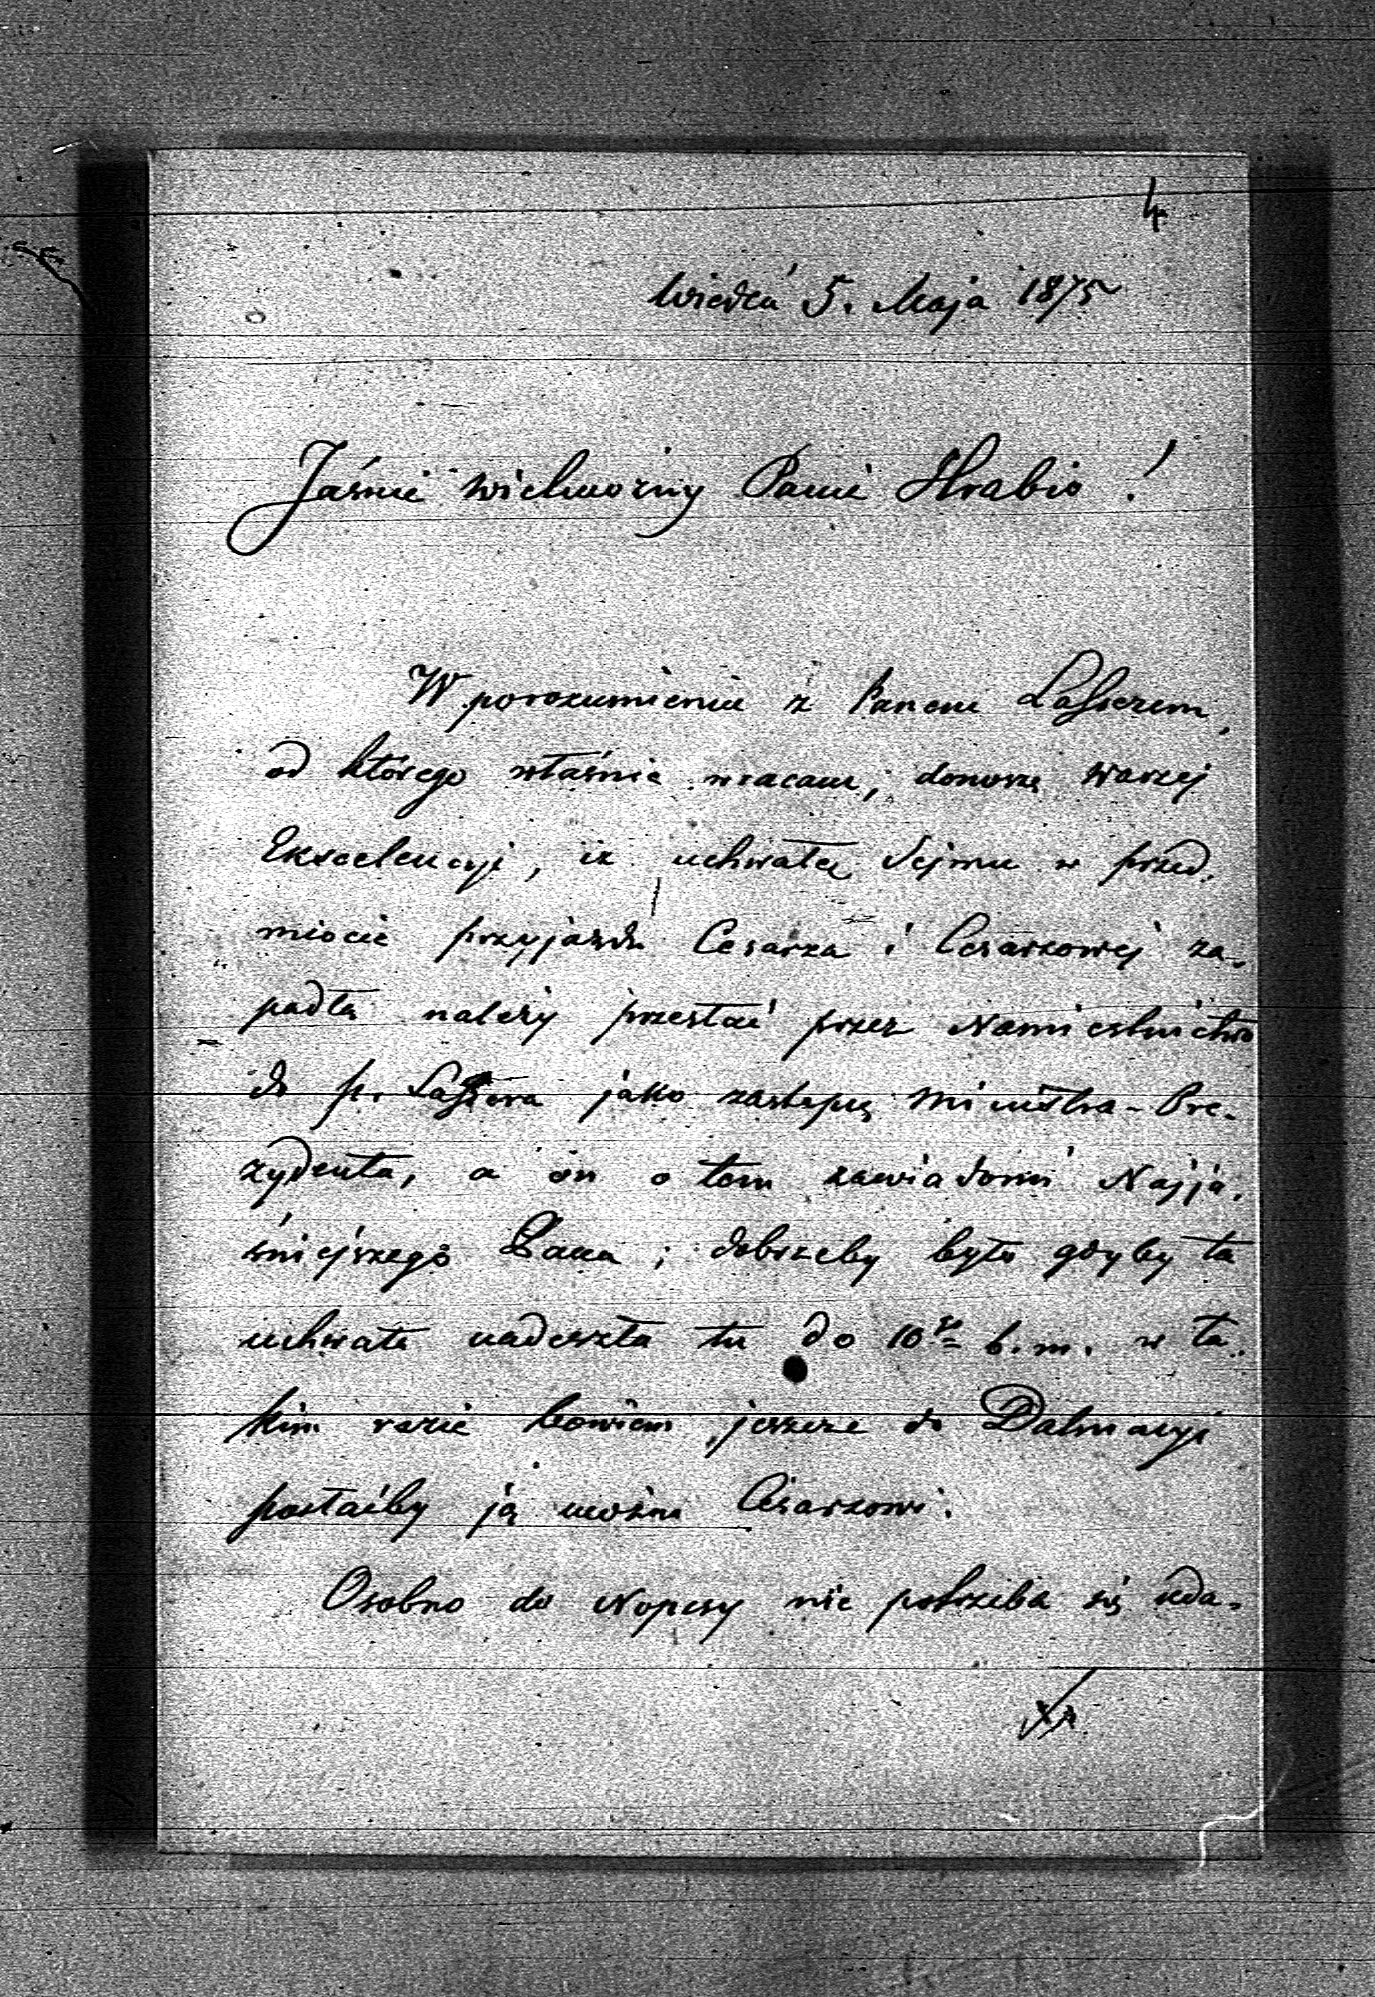 4
Wiedeń 5. Maja 1875
Jaśnie wielmożny Panie Hrabio!
W porozumieniu z Panem Lasserem,
od którego właśnie wracam, donoszę Waszej
Ekscelencyi, iż uchwałę Sejmu w przed-
miocie przyjazdu Cesarza i Cesarzowej za-
padłą należy przesłać przez Namiestnictwo
do p. Lassera jako zastępcę Ministra-Pre-
zydenta, a on o tem zawiadomi Najja-
śniejszego Pana; dobrzeby było gdyby ta
uchwała nadeszła tu do 10go b.m. w ta-
kim razie bowiem jeszcze do Dalmacyi
posłaćby ją można Cesarzowi.
Osobno do Nopcsy nie potrzeba się uda-